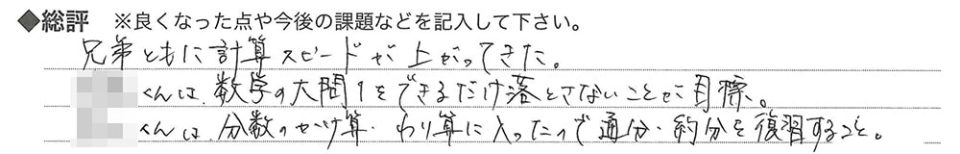 ◆総評 ※良くなった点や今後の課題などを記入して下さい。
兄弟ともに計算スピードが上がってきた。
くんは、数学の大問1をできるだけ落とさないことが目標。
くんは、分数のかけ算・わり算に入ったので通分・約分を復習すること。